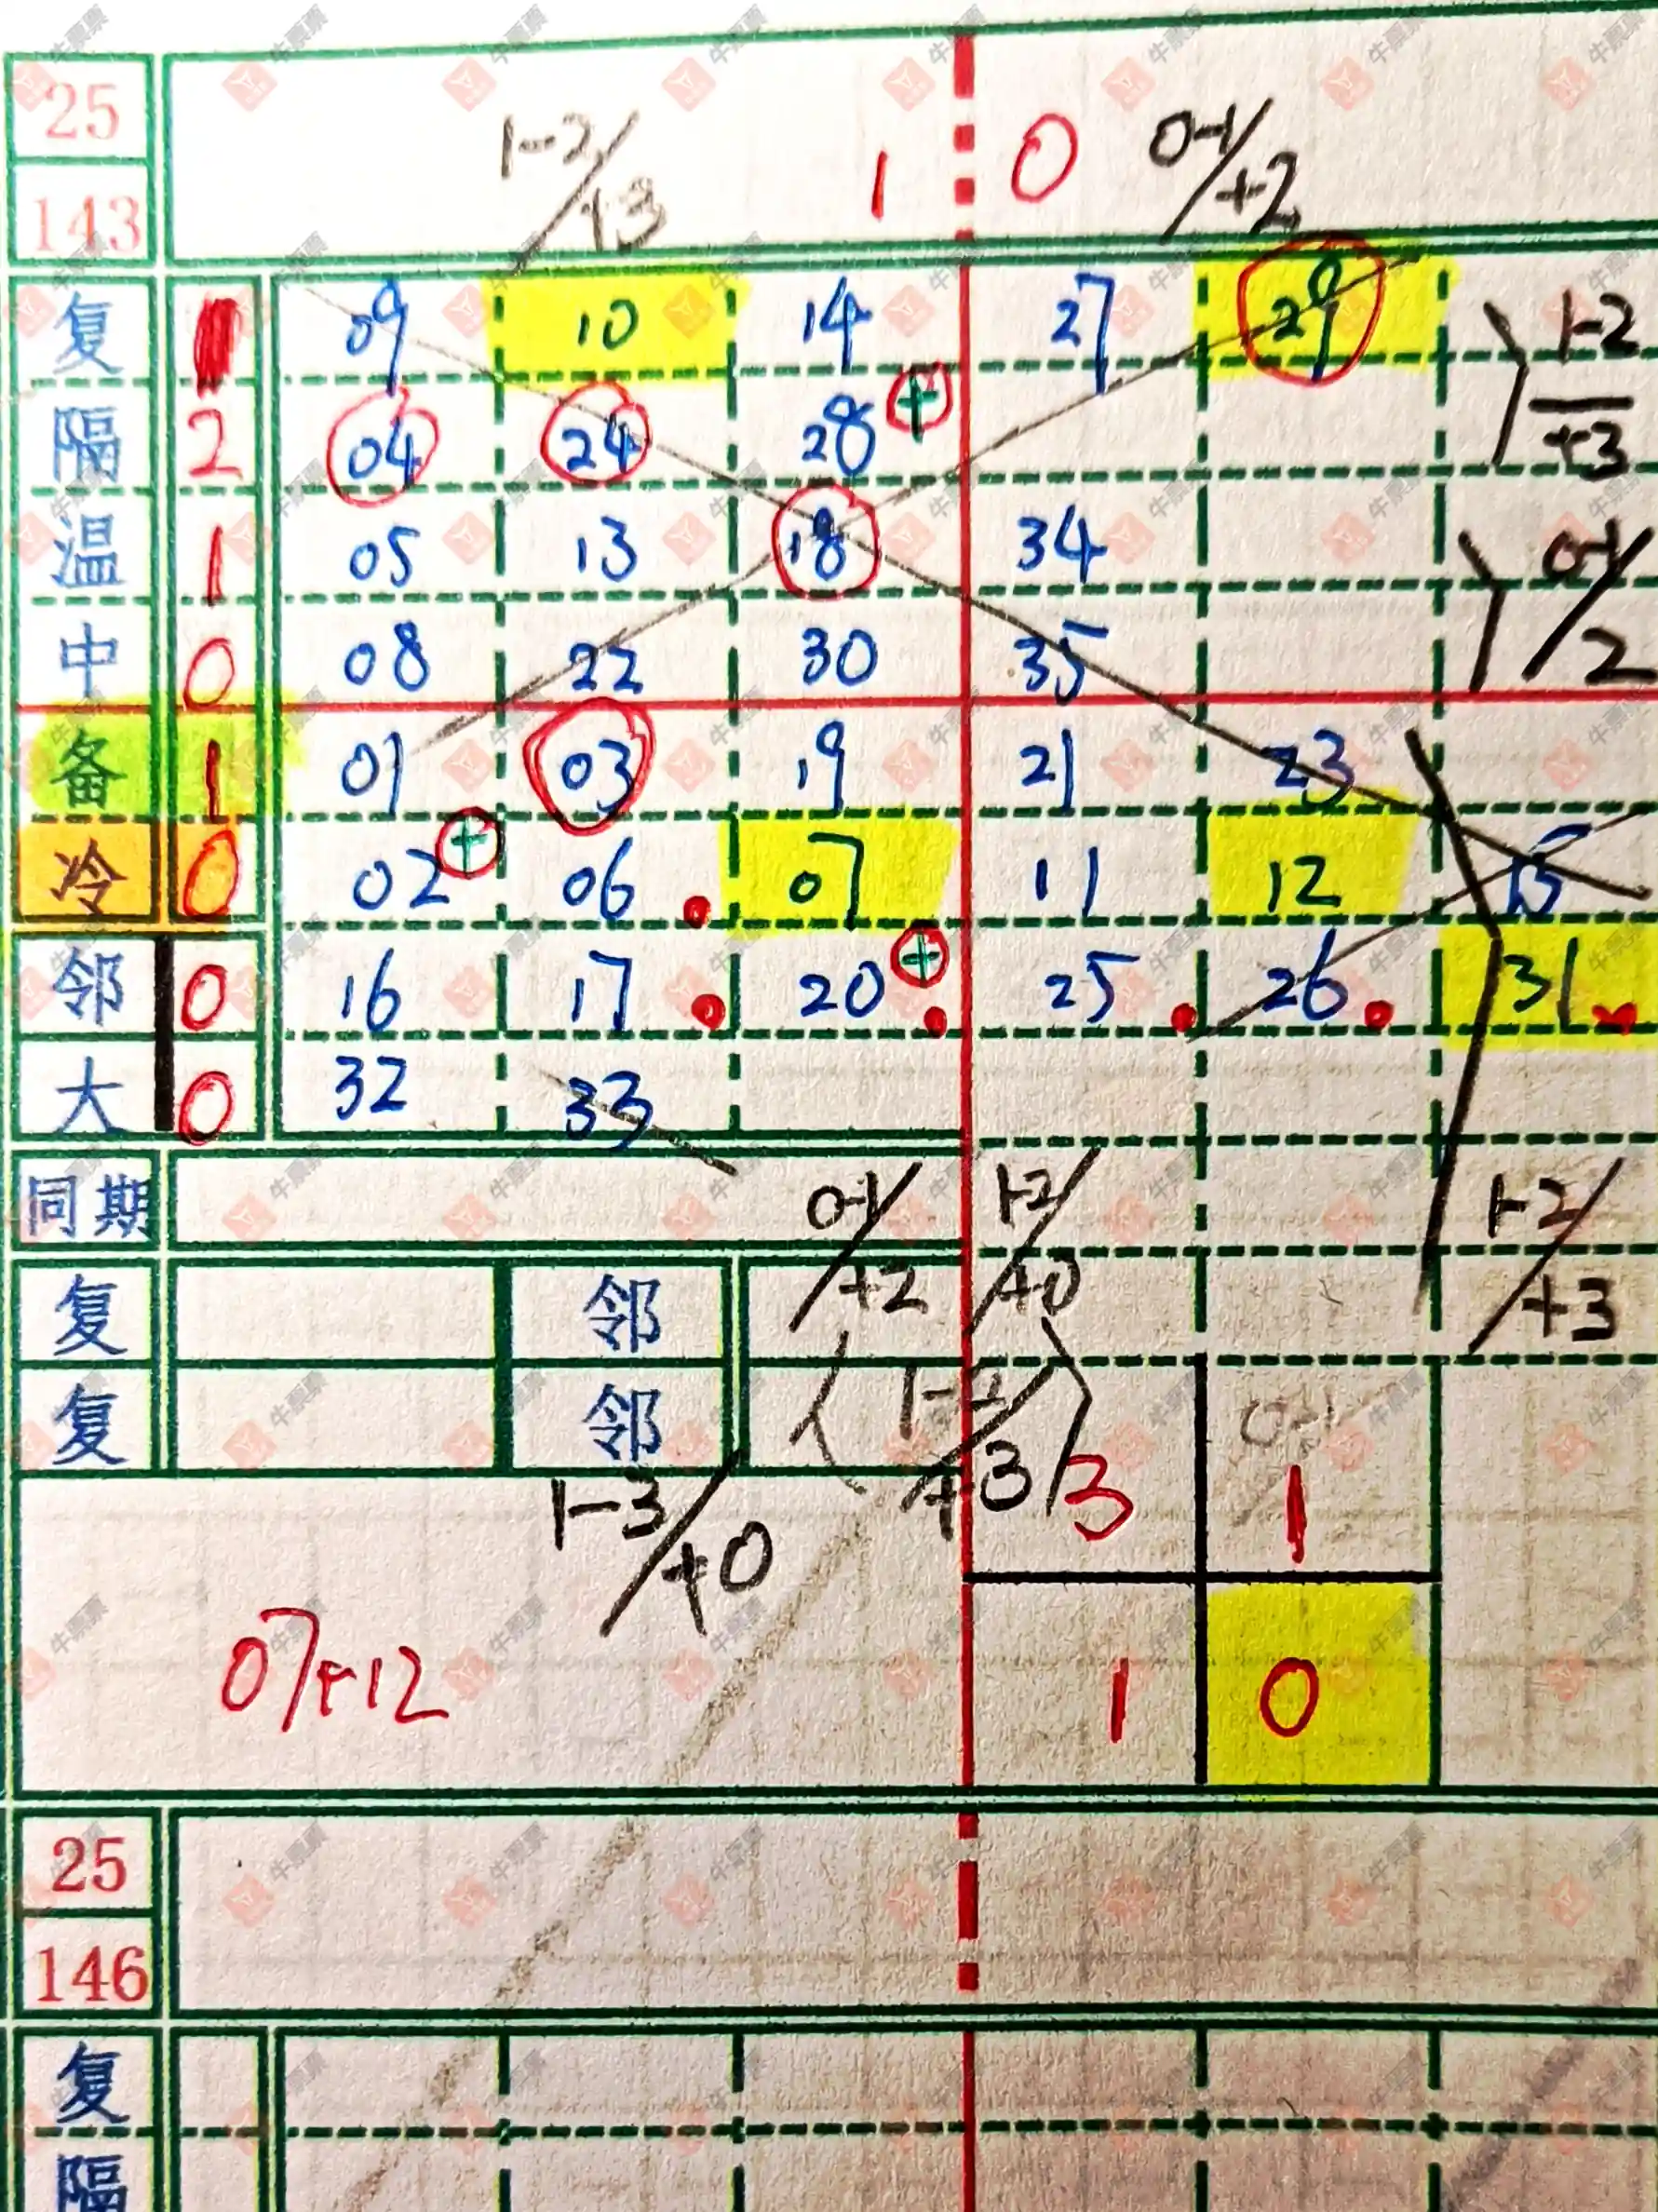 25
143
1-2/+3 1 0 0-1/+2
复 09 10 14 27 29 1-2/+3
隔 2 04 24 28 +
温 1 05 13 18 34 0-1/2
中 0 08 22 30 35
备 1 01 03 19 21 23
冷 0 02 + 06 07 11 12 15
邻 0 16 17 20 + 25 26 31
大 0 32 33
同期 0-1/+2 1-2/+0 1-2/+3
复 邻
复 邻 1-2/+3 3 0-1 1
1-3/+0
07+12 1 0
25
146
复
隔
牛票票